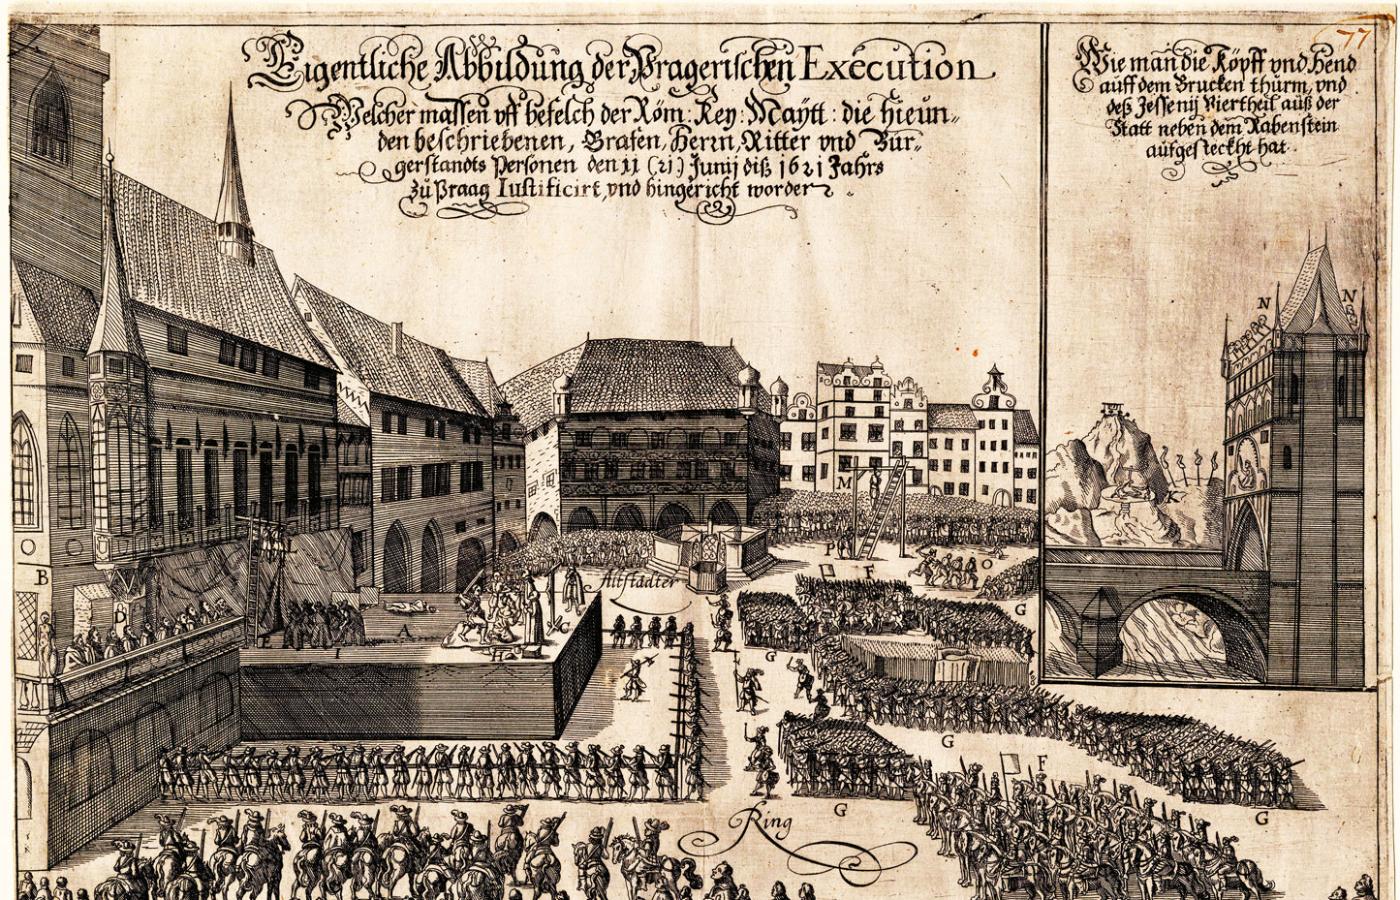 Eigentliche Abbildung der Pragerischen Execution
Welcher massen vff befelch der Röm: Key: Maÿtt: die hieun„
den beschriebenen, Grafen, Herrn, Ritter vnd Bur„
gerstandts Personen den 11 (21) Junij diß 1621 Jahrs
zu Praag Iustificirt, vnd hingericht worden
77
Wie man die Köpff vnd Hend
auff dem Brucken thurm, vnd
deß Jessenij Viertheil auß der
Statt neben dem Rabenstein
auffgesteckht hat
N N
M
K
P F O
B Altstädter
D G
L
A C
I H G
G F
G G
Ring